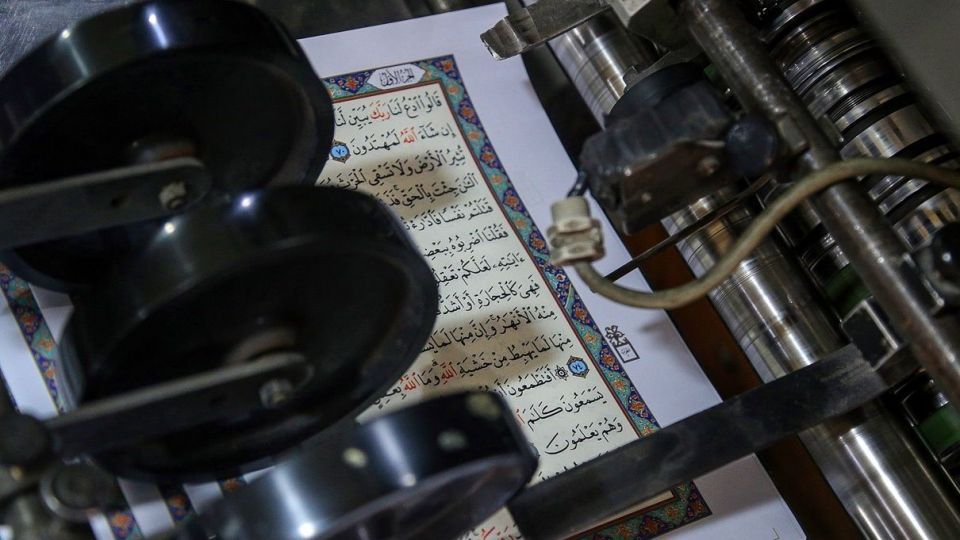 الجزء الأول
قَالُوا۟ ٱدْعُ لَنَا رَبَّكَ يُبَيِّن لَّنَا
إِن شَآءَ ٱللَّهُ لَمُهْتَدُونَ ٧٠
تُثِيرُ ٱلْأَرْضَ وَلَا تَسْقِى ٱلْحَرْثَ
ٱلْـَٰٔنَ جِئْتَ بِٱلْحَقِّ
قَتَلْتُمْ نَفْسًا
فَقُلْنَا ٱضْرِبُوهُ بِبَعْضِ
ءَايَٰتِهِۦ لَعَلَّكُمْ
فَهِىَ كَٱلْحِجَارَةِ أَوْ أَشَدُّ
مِنْهُ ٱلْأَنْهَٰرُ وَإِنَّ مِنْهَا
مِنْهَا لَمَا يَهْبِطُ مِنْ خَشْيَةِ ٱللَّهِ وَمَا ٱللَّهُ
٧٤ أَفَتَطْمَعُونَ
يَسْمَعُونَ كَلَٰمَ
وَهُمْ يَعْلَمُونَ